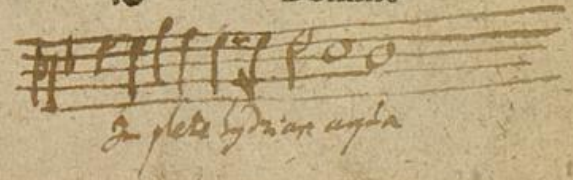 Im plete hydrias aqua